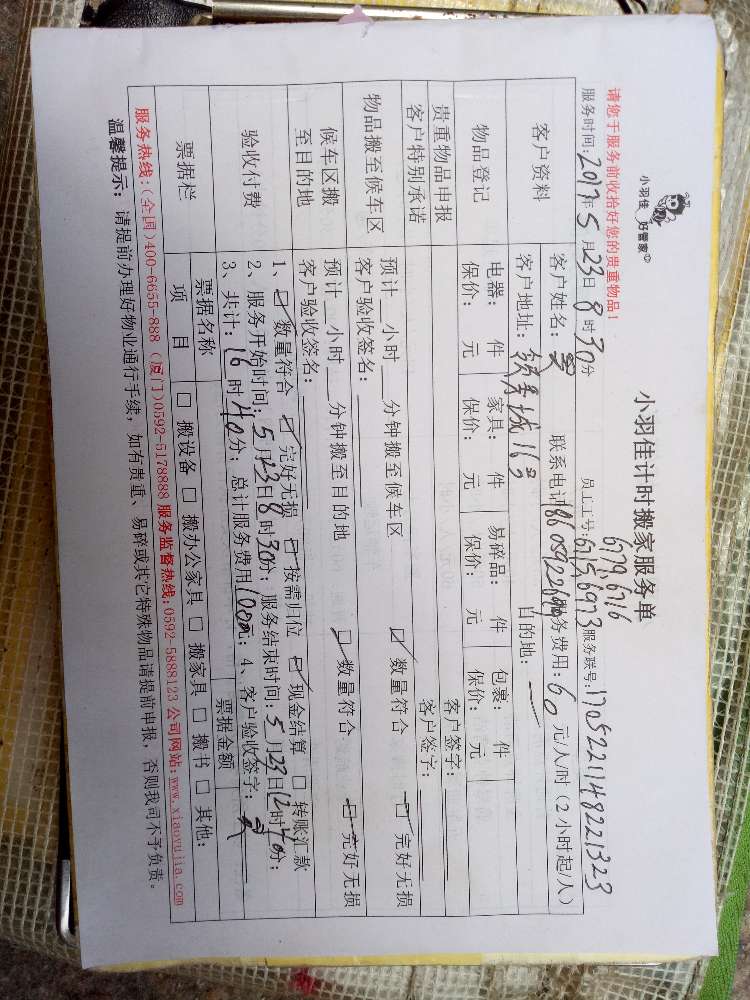 小羽佳 好管家
小羽佳计时搬家服务单
请您于服务前收拾好您的贵重物品！
6179, 6716
服务时间：2017年5月23日8时30分 员工工号：6715,6973 服务联号：1705221148221323
客户资料
客户姓名： 联系电话 服务费用：60元/人/时（2小时起/人）
客户地址： 城163 目的地：
物品登记
电器： 件 家具： 件 易碎品： 件 包裹： 件
保价： 元 保价： 元 保价： 元 保价： 元
贵重物品申报 客户签字：
客户特别承诺 客户签字：
物品搬至候车区
预计__小时__分钟搬至候车区 ☑数量符合 ☑完好无损
客户验收签名：
候车区搬至目的地
预计__小时__分钟搬至目的地 ☑数量符合 ☑完好无损
客户验收签名：
验收付费
1、☑数量符合 ☑完好无损 ☑按需归位 ☑现金结算 □转账汇款
2、服务开始时间：5月23日8时30分；服务结束时间：5月23日12时40分；
3、共计：16时40分；总计服务费用1000元；4、客户验收签字：
票据栏
票据名称 票据金额
项 目 □搬设备 □搬办公家具 □搬家具 □搬书 □其他：
服务热线：(全国)400-6655-888 (厦门)0592-5178888 服务监督热线：0592-5888123 公司网站：www.xiaoyujia.com
温馨提示： 请提前办理好物业通行手续，如有贵重、易碎或其它特殊物品请提前申报，否则我司不予负责。